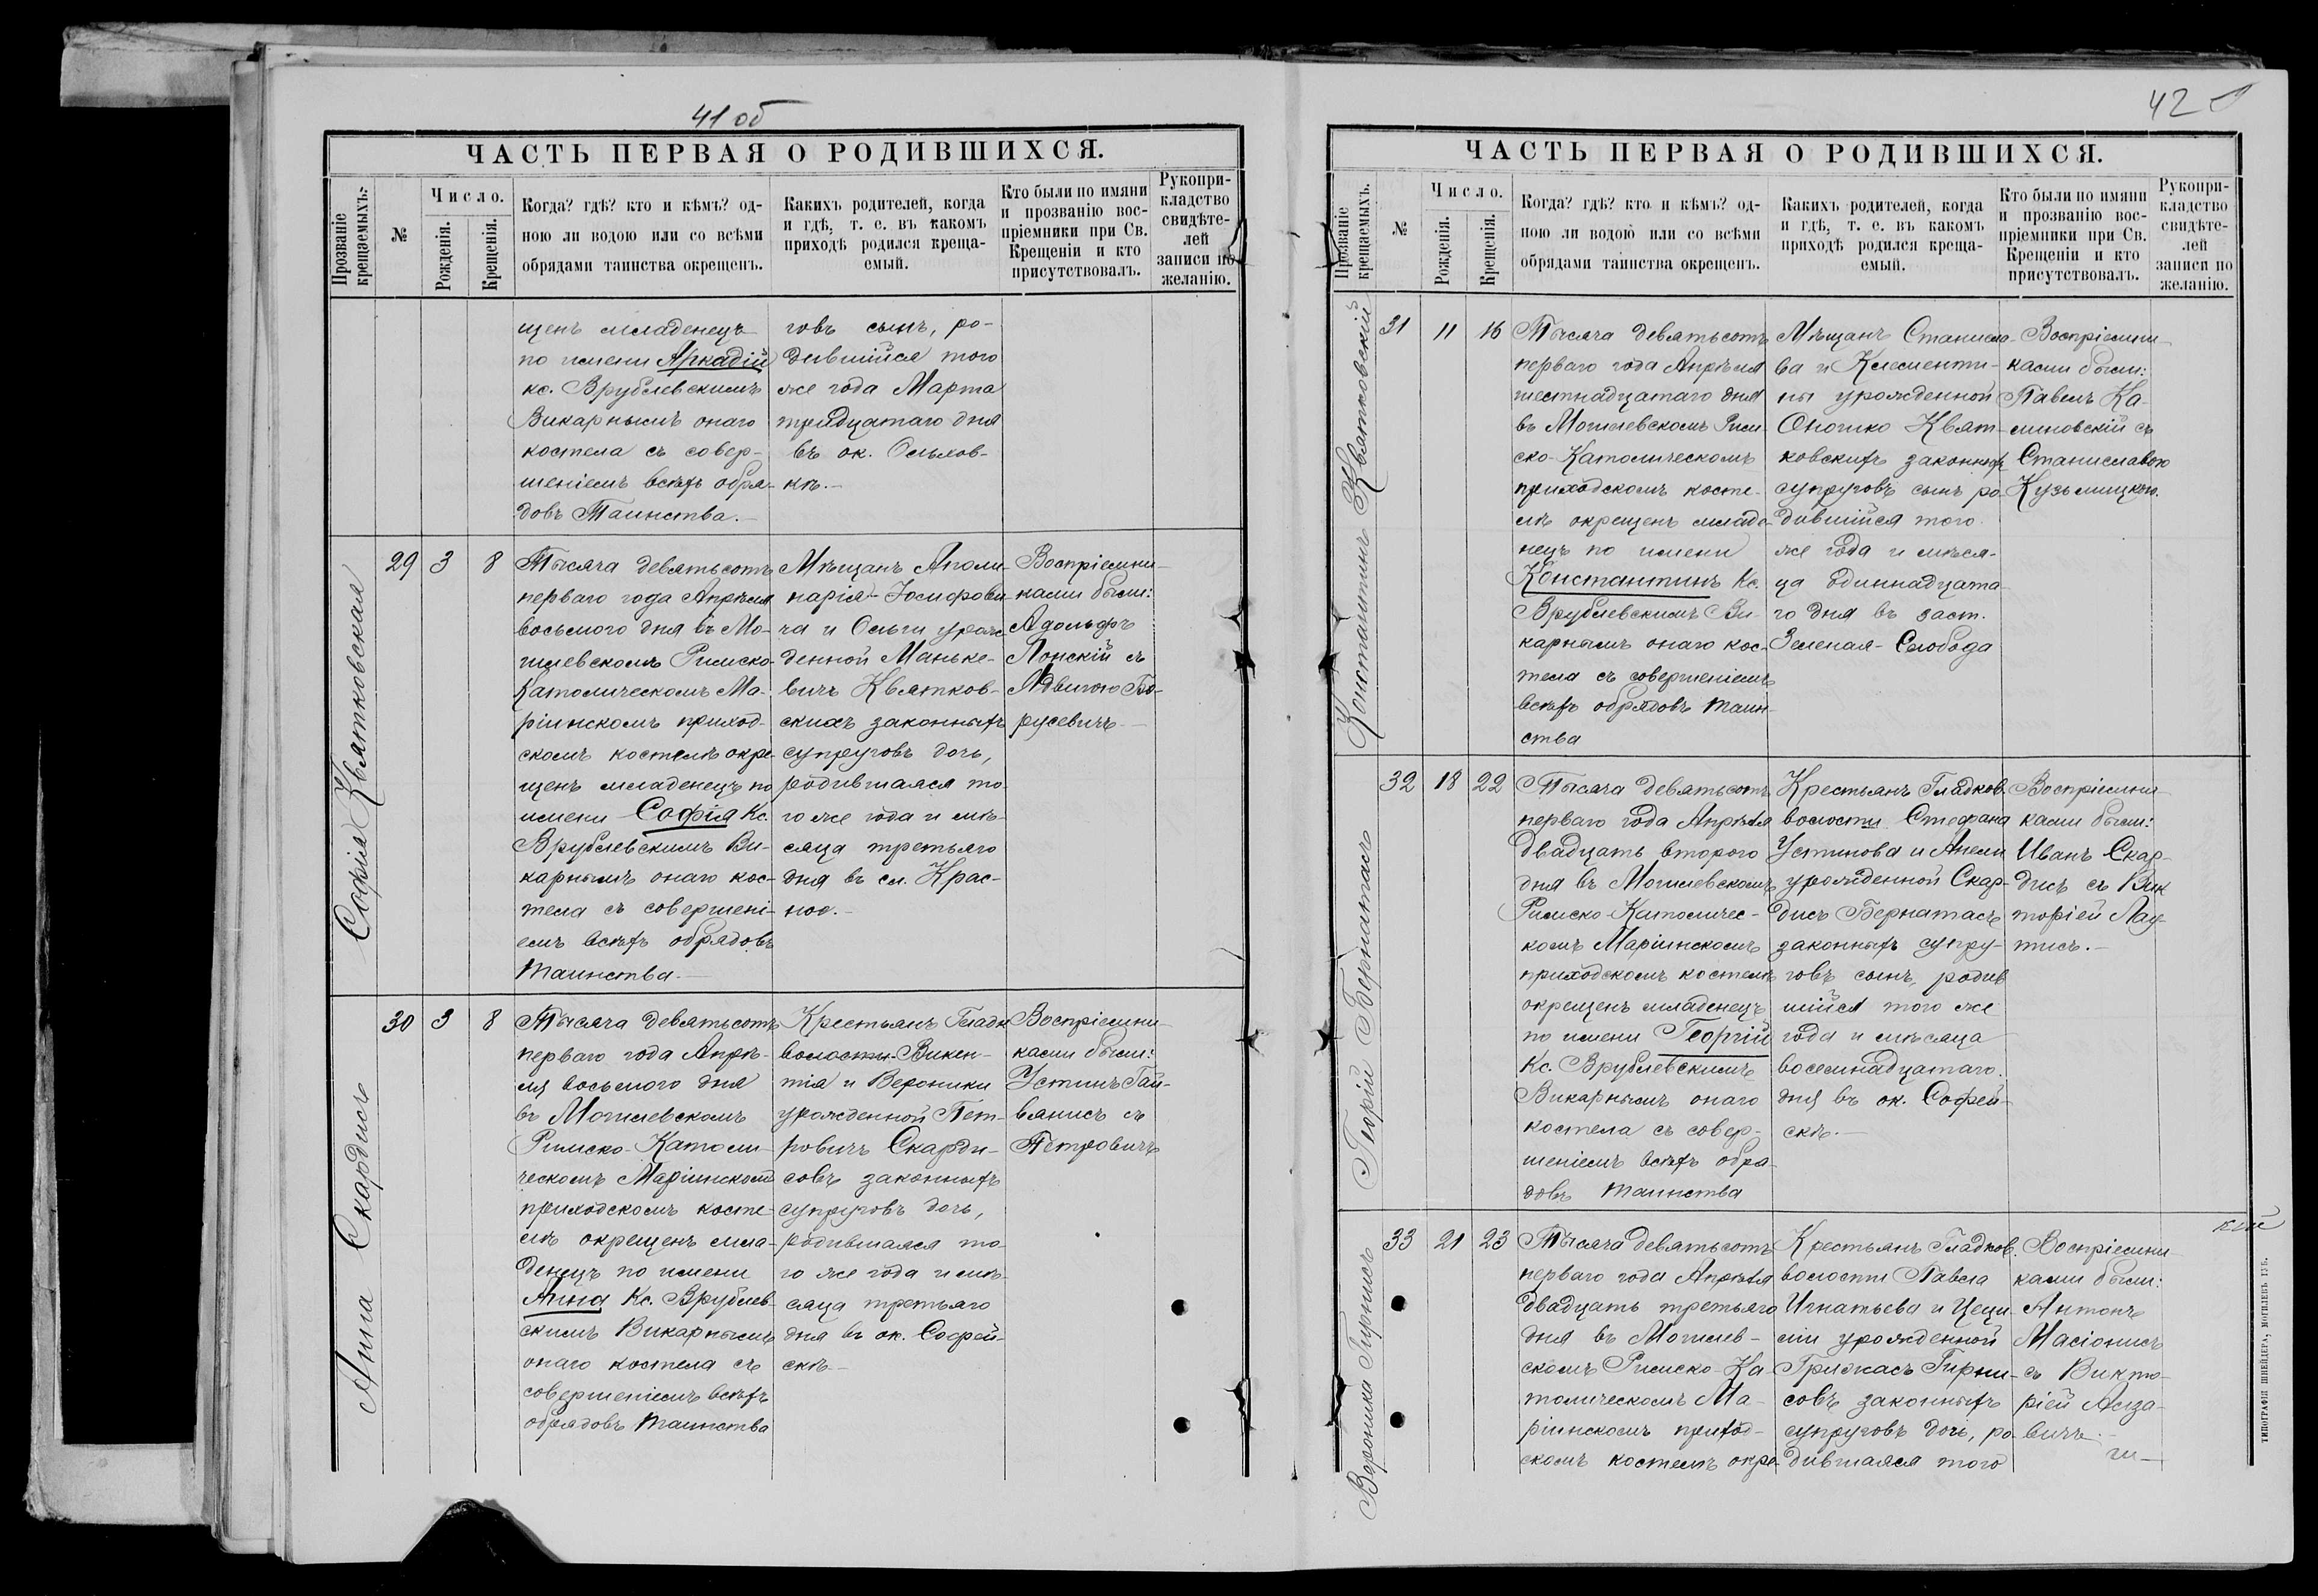 41 об
ЧАСТЬ ПЕРВАЯ О РОДИВШИХСЯ.
Прозваніе крещаемыхъ.
№
Число.
Рожденія.
Крещенія.
Когда? гдѣ? кто и кѣмъ? од-
ною ли водою или со всѣми
обрядами таинства окрещенъ.
Какихъ родителей, когда
и гдѣ, т. е. въ какомъ
приходѣ родился креща-
емый.
Кто были по имяни
и прозванію вос-
пріемники при Св.
Крещеніи и кто
присутствовалъ.
Рукопри-
кладство
свидѣте-
лей
записи по
желанію.
щенъ младенецъ
по имени Аркадій
кс. Врублевскимъ
Викарнымъ онаго
костела съ совер-
шеніемъ всѣхъ обря-
довъ Таинства.
говъ сынъ, ро-
дившійся того
же года Марта
тридцатаго дня
въ ок. Ольхов-
кѣ.
Софія Квятковская
29 3 8
Тысяча девятьсотъ
перваго года Апрѣля
восьмого дня въ Мо-
гилевскомъ Римско-
Католическомъ Ма-
ріинскомъ приход-
скомъ костелѣ окре-
щенъ младенецъ по
имени Софія Кс.
Врублевскимъ Ви-
карнымъ онаго кос-
тела съ совершені-
емъ всѣхъ обрядовъ
Таинства.
Мѣщанъ Аполи-
нарія-Іосифови-
ча и Ольги урож-
денной Маньке-
вичъ Квятков-
скихъ законныхъ
супруговъ дочь,
родившаяся то-
го же года и мѣ-
сяца третьяго
дня въ сл. Крас-
ное.
Воспріемни-
ками были:
Адольфъ
Лонскій съ
Ядвигою Бо-
русевичъ
Анна Скардисъ
30 3 8
Тысяча девятьсотъ
перваго года Апрѣ-
ля восьмого дня
въ Могилевскомъ
Римско-Католи-
ческомъ Маріинскомъ
приходскомъ косте-
лѣ окрещенъ мла-
денецъ по имени
Анна Кс. Врублев-
скимъ Викарнымъ
онаго костела съ
совершеніемъ всѣхъ
обрядовъ Таинства
Крестьянъ Гладк
волости Викен-
тія и Вероники
урожденной Пет-
ровичъ Скарди-
совъ законныхъ
супруговъ дочь,
родившаяся то-
го же года и мѣ-
сяца третьяго
дня въ ок. Софей-
скѣ
Воспріемни-
ками были:
Устинъ Гай-
влнисъ съ
Петровичъ
42
ЧАСТЬ ПЕРВАЯ О РОДИВШИХСЯ.
Прозваніе крещаемыхъ.
№
Число.
Рожденія.
Крещенія.
Когда? гдѣ? кто и кѣмъ? од-
ною ли водою или со всѣми
обрядами таинства окрещенъ.
Какихъ родителей, когда
и гдѣ, т. е. въ какомъ
приходѣ родился креща-
емый.
Кто были по имяни
и прозванію вос-
пріемники при Св.
Крещеніи и кто
присутствовалъ.
Рукопри-
кладство
свидѣте-
лей
записи по
желанію.
Константинъ Квятковскій
31 11 16
Тысяча девятьсотъ
перваго года Апрѣля
шестнадцатаго дня
въ Могилевскомъ Рим-
ско-Католическомъ
приходскомъ косте-
лѣ окрещенъ младе-
нецъ по имени
Константинъ Кс.
Врублевскимъ Ви-
карнымъ онаго кос-
тела съ совершеніемъ
всѣхъ обрядовъ Таин-
ства
Мѣщанъ Станисла-
ва и Клементи-
ны урожденной
Оношко Квят-
ковскихъ законныхъ
супруговъ сынъ ро-
дившійся того
же года и мѣся-
ца одиннадцата-
го дня въ заст.
Зеленая-Слобода
Воспріемни-
ками были:
Павелъ Ка-
линовскій съ
Станиславою
Кузьмицкою.
Георгій Бернатасъ
32 18 22
Тысяча девятьсотъ
перваго года Апрѣля
двадцать второго
дня въ Могилевскомъ
Римско-Католичес-
комъ Маріинскомъ
приходскомъ костелѣ
окрещенъ младенецъ
по имени Георгій
Кс. Врублевскимъ
Викарнымъ онаго
костела съ совер-
шеніемъ всѣхъ обря-
довъ Таинства
Крестьянъ Гладков.
волости Стефана
Устинова и Анели
урожденной Скар-
дисъ Бернатасъ
законныхъ супру-
говъ сынъ, родив
шійся того же
года и мѣсяца
восемнадцатаго
дня въ ок. Софей-
скѣ.
Воспріемни-
ками были:
Иванъ Скар-
дисъ съ Вик
торіей Лау-
тисъ.
Вероника Гирнисъ
33 21 23
Тысяча девятьсотъ
перваго года Апрѣля
двадцать третьяго
дня въ Могилев-
скомъ Римско-Ка-
толическомъ Ма-
ріинскомъ приход-
скомъ костелѣ окре-
Крестьянъ Гладков.
волости Павла
Игнатьева и Цеци-
ліи урожденной
Грижасъ Гирни-
совъ законныхъ
супруговъ дочь, ро-
дившаяся того
Воспріемни-
ками были:
Антонъ
Масіонисъ
съ Викто-
ріей
вичъ.
ТИПОГРАФІЯ ШНЕЙДЕРА, МОГИЛЕВЪ ГУБ.